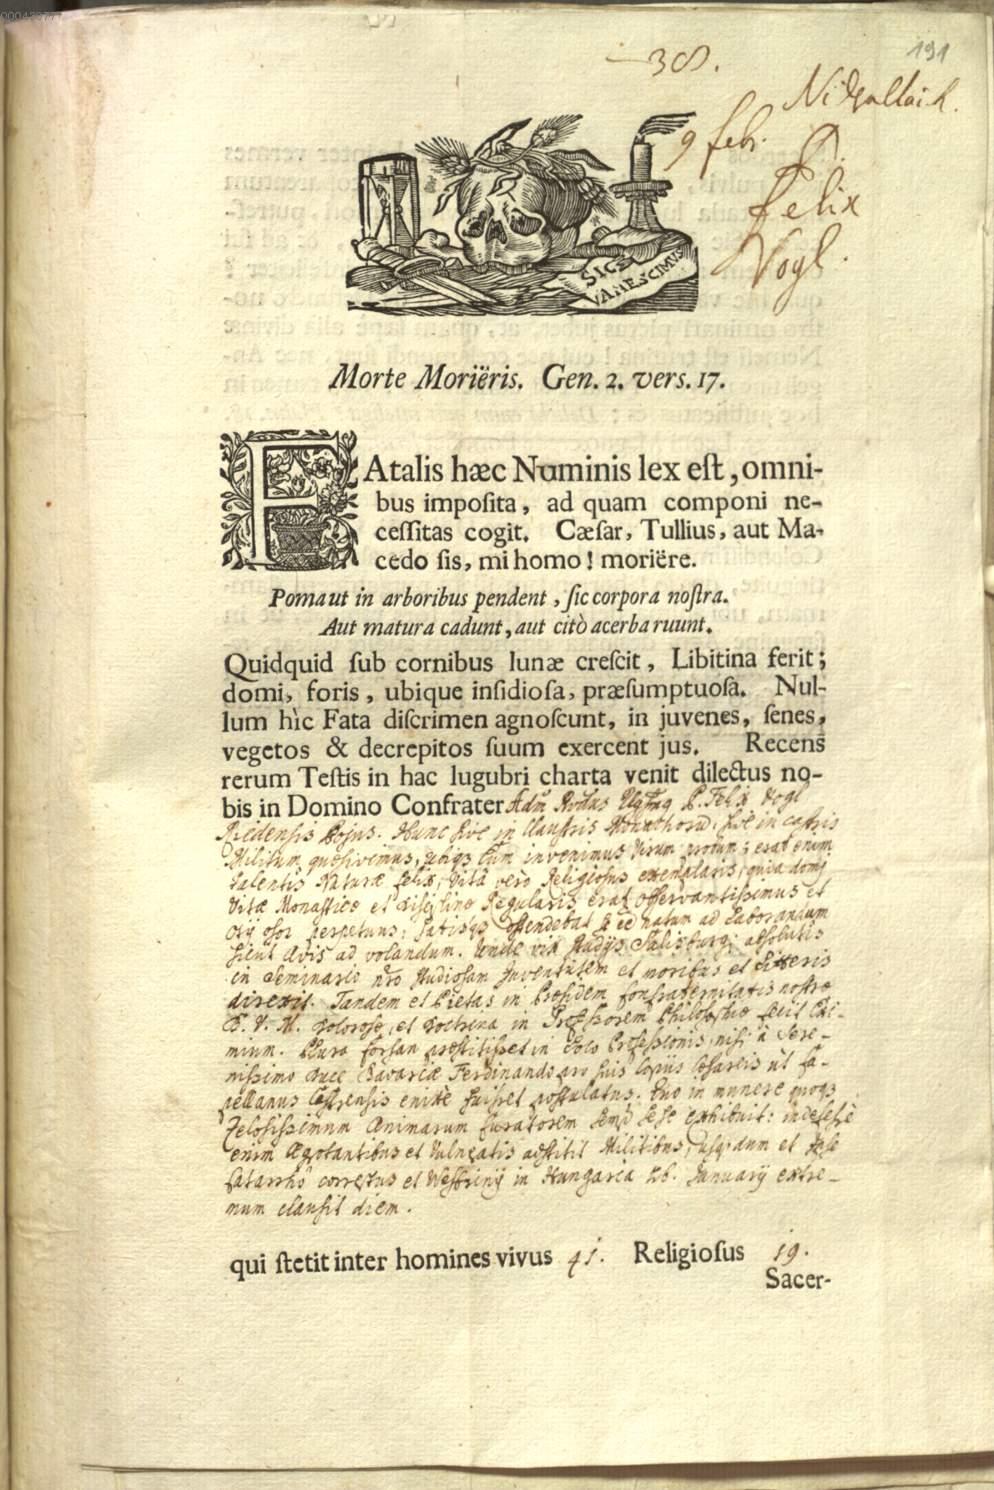 191
38.
Nidallaich.
9 febr.
P.
Felix
Vogl.
SIC
VANESCIMUS
Morte Moriëris. Gen. 2. vers. 17.
FAtalis hæc Numinis lex eſt, omni-
bus impoſita, ad quam componi ne-
ceſſitas cogit. Cæſar, Tullius, aut Ma-
cedo ſis, mi homo! moriëre.
Poma ut in arboribus pendent, ſic corpora noſtra.
Aut matura cadunt, aut citò acerba ruunt.
Quidquid ſub cornibus lunæ creſcit, Libitina ferit;
domi, foris, ubique inſidioſa, præſumptuoſa. Nul-
lum hìc Fata diſcrimen agnoſcunt, in juvenes, ſenes,
vegetos & decrepitos ſuum exercent jus. Recens
rerum Teſtis in hac lugubri charta venit dilectus no-
bis in Domino Confrater Adm Rndus P. Felix Vogl
Riedensis Bojus. Hunc sive in Claustris sive in castris
Militum quæsivimus, ubiq3 Eum invenimus Virum probum; erat enim
talentis Naturæ felix, Vitâ verò Religiosus exemplaris; quia domi
Vitæ Monasticæ et disciplinæ Regularis erat observantissimus et
otij osor perpetuus; satisq3 ostendebat se eê natum ad laborandum
sicut Avis ad volandum. Unde vix studijs Salisburgi absolutis
in Seminario nrô studiosam Juventutem et moribus et Litteris
direxit. Tandem et Pietas in Præsidem Confraternitatis nostræ
B. V. M. Dolorosæ, et Doctrina in Professorem Philosophiæ fecit Exi-
mium. Plura forsan præstitisset in Loco Professionis, nisi à Sere-
nissimo Duce Bavariæ Ferdinando pro suis Copiis Cæsareis ut Ca-
pellanus Castrensis enixè fuisset postulatus. Quo in munere quoq3
Zelosissimum Animarum Curatorem semp sese exhibuit: indefessè
enim Ægrotantibus et Vulneratis adstitit Militibus, usq3 dum et ipse
Catarrhô correptus et in Hungaria 26. Januarij extre-
mum clausit diem.
qui ſtetit inter homines vivus 41. Religioſus 19.
Sacer-